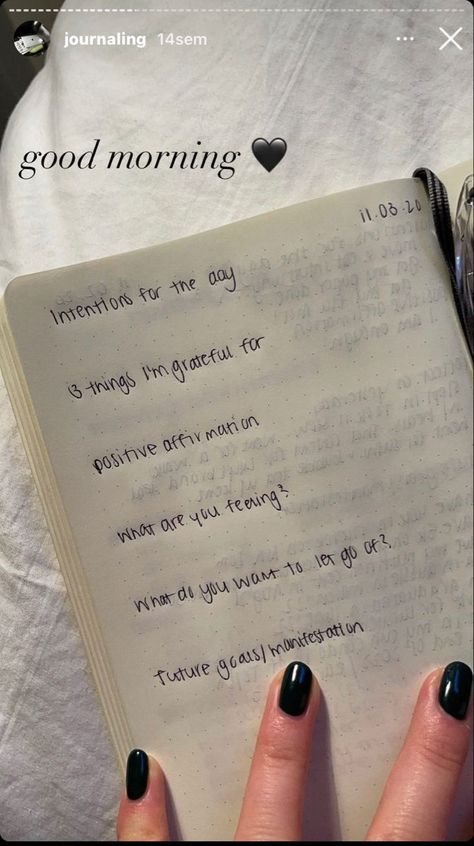 journaling 14sem
good morning 🖤
11.03.20
Intentions for the day
3 things I'm grateful for
positive affirmation
what are you feeling?
what do you want to let go of?
future goals/manifestation